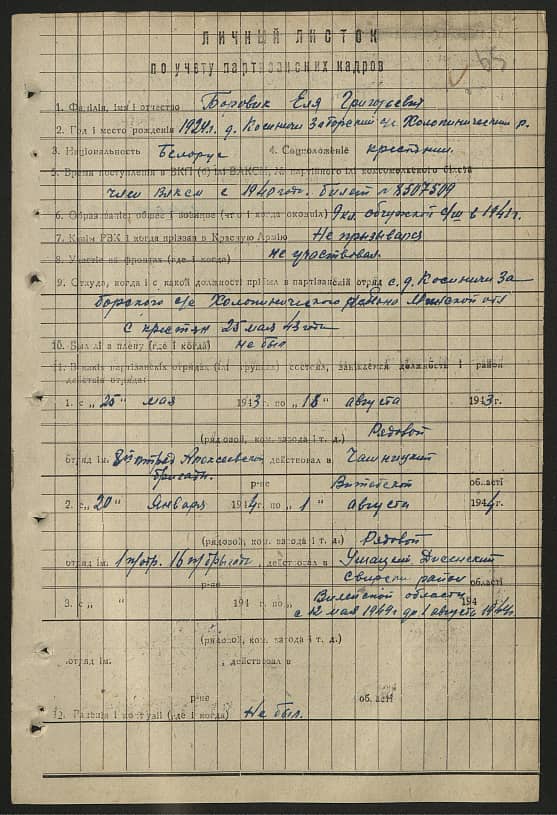 ЛИЧНЫЙ ЛИСТОК
по учету партизанских кадров
1. Фамілія, імя і отчество Боровик Еля Григорьевич
2. Год і место рождения 1924г. д. Косиничи Заборский с/с Холопинический р.
3. Національность Белорус 4. Соцположеніе крестянин
5. Время поступления в ВКП (б) ілі ВЛКСМ, № партійного ілі комсомольского білета
член ВЛКСМ с 1940 год. билет № 8507509
6. Образованіе, общее і военное (что і когда окончіл) 9 кл. с/ш в 1941г.
7. Каким РВК і когда прізван в Красную Армію Не призывался
8. Участіе на фронтах (где і когда) не участвовал.
9. Откуда, когда і с какой должності прішел в партізанскій отряд с. д. Косиничи За
борского с/с Холопинического района Минской обл
с крестян 25 мая 43 года
10. Был лі в плену (где і когда) не был
11. В каких партізанскіх отрядах (ілі группах) состоял, занімаемая должность і район
действія отряда:
1. с „25“ мая 1943 г. по „18“ августа 1943 г.
(рядовой, ком. взвода і т. д.) Рядовой
отряд ім. отряд Алексеевской действовал в Чашницкий
бригады.
р-не Витебской області
2. с „20“ Января 1944 г. по „1“ августа 1944 г.
(рядовой, ком. взвода і т. д.) Рядовой
отряд ім. 1 п/отр. 16 п/бригады, действовал в Ушацкий, Дисенский
р-не Свирский район області
3. с „ “ 194 г. по „ Вилейской области 194
с 12 мая 1944г до 1 августа 1944г.
(рядовой, ком. взвода і т. д.)
отряд ім. , действовал в
р-не області
12. Раненія і контузіі (где і когда) Не был.